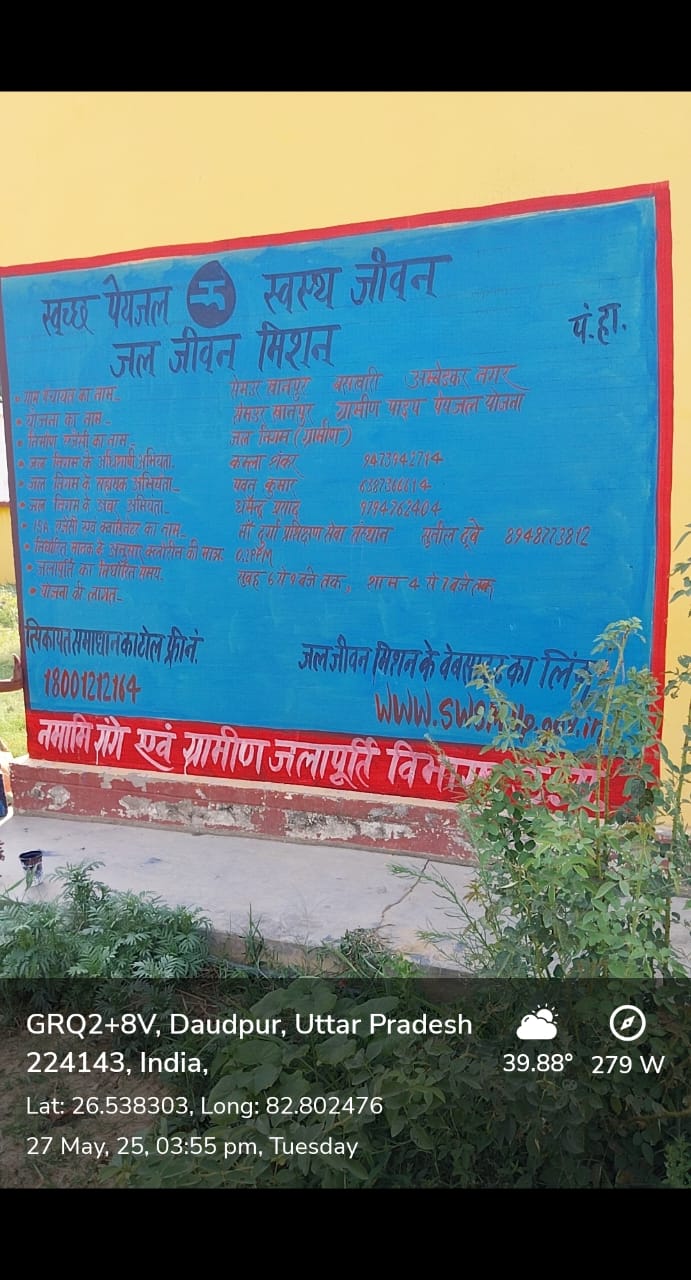 स्वच्छ पेयजल स्वस्थ जीवन
जल जीवन मिशन
पं.हा.
• ग्राम पंचायत का नाम_ सेमउर खानपुर बसखारी अम्बेडकर नगर
• योजना का नाम_ सेमउर खानपुर ग्रामीण पाइप पेयजल योजना
• निर्माण एजेंसी का नाम_ जल निगम (ग्रामीण)
• जल निगम के अधिशाषी अभियंता_ कमला शंकर 9473942714
• जल निगम के सहायक अभियंता_ पवन कुमार 6387366614
• जल निगम के अवर अभियंता_ धर्मेन्द्र 9794762404
• ISA एजेंसी एवं का नाम_ माँ दुर्गा प्रशिक्षण सेवा संस्थान सुनील दूबे 8948773812
• निर्धारित मानक के अनुसार क्लोरीन की मात्रा 0.2PPM
• जलापूर्ति का निर्धारित समय_ सुबह 6 से 9 बजे तक, शाम 4 से 7 बजे तक
• योजना की लागत_
शिकायत समाधान का टोल फ्री नं.
18001212164
जल जीवन मिशन के वेबसाइट का लिंक
नमामि गंगे एवं ग्रामीण जलापूर्ति
GRQ2+8V, Daudpur, Uttar Pradesh
224143, India,
39.88° 279 W
Lat: 26.538303, Long: 82.802476
27 May, 25, 03:55 pm, Tuesday